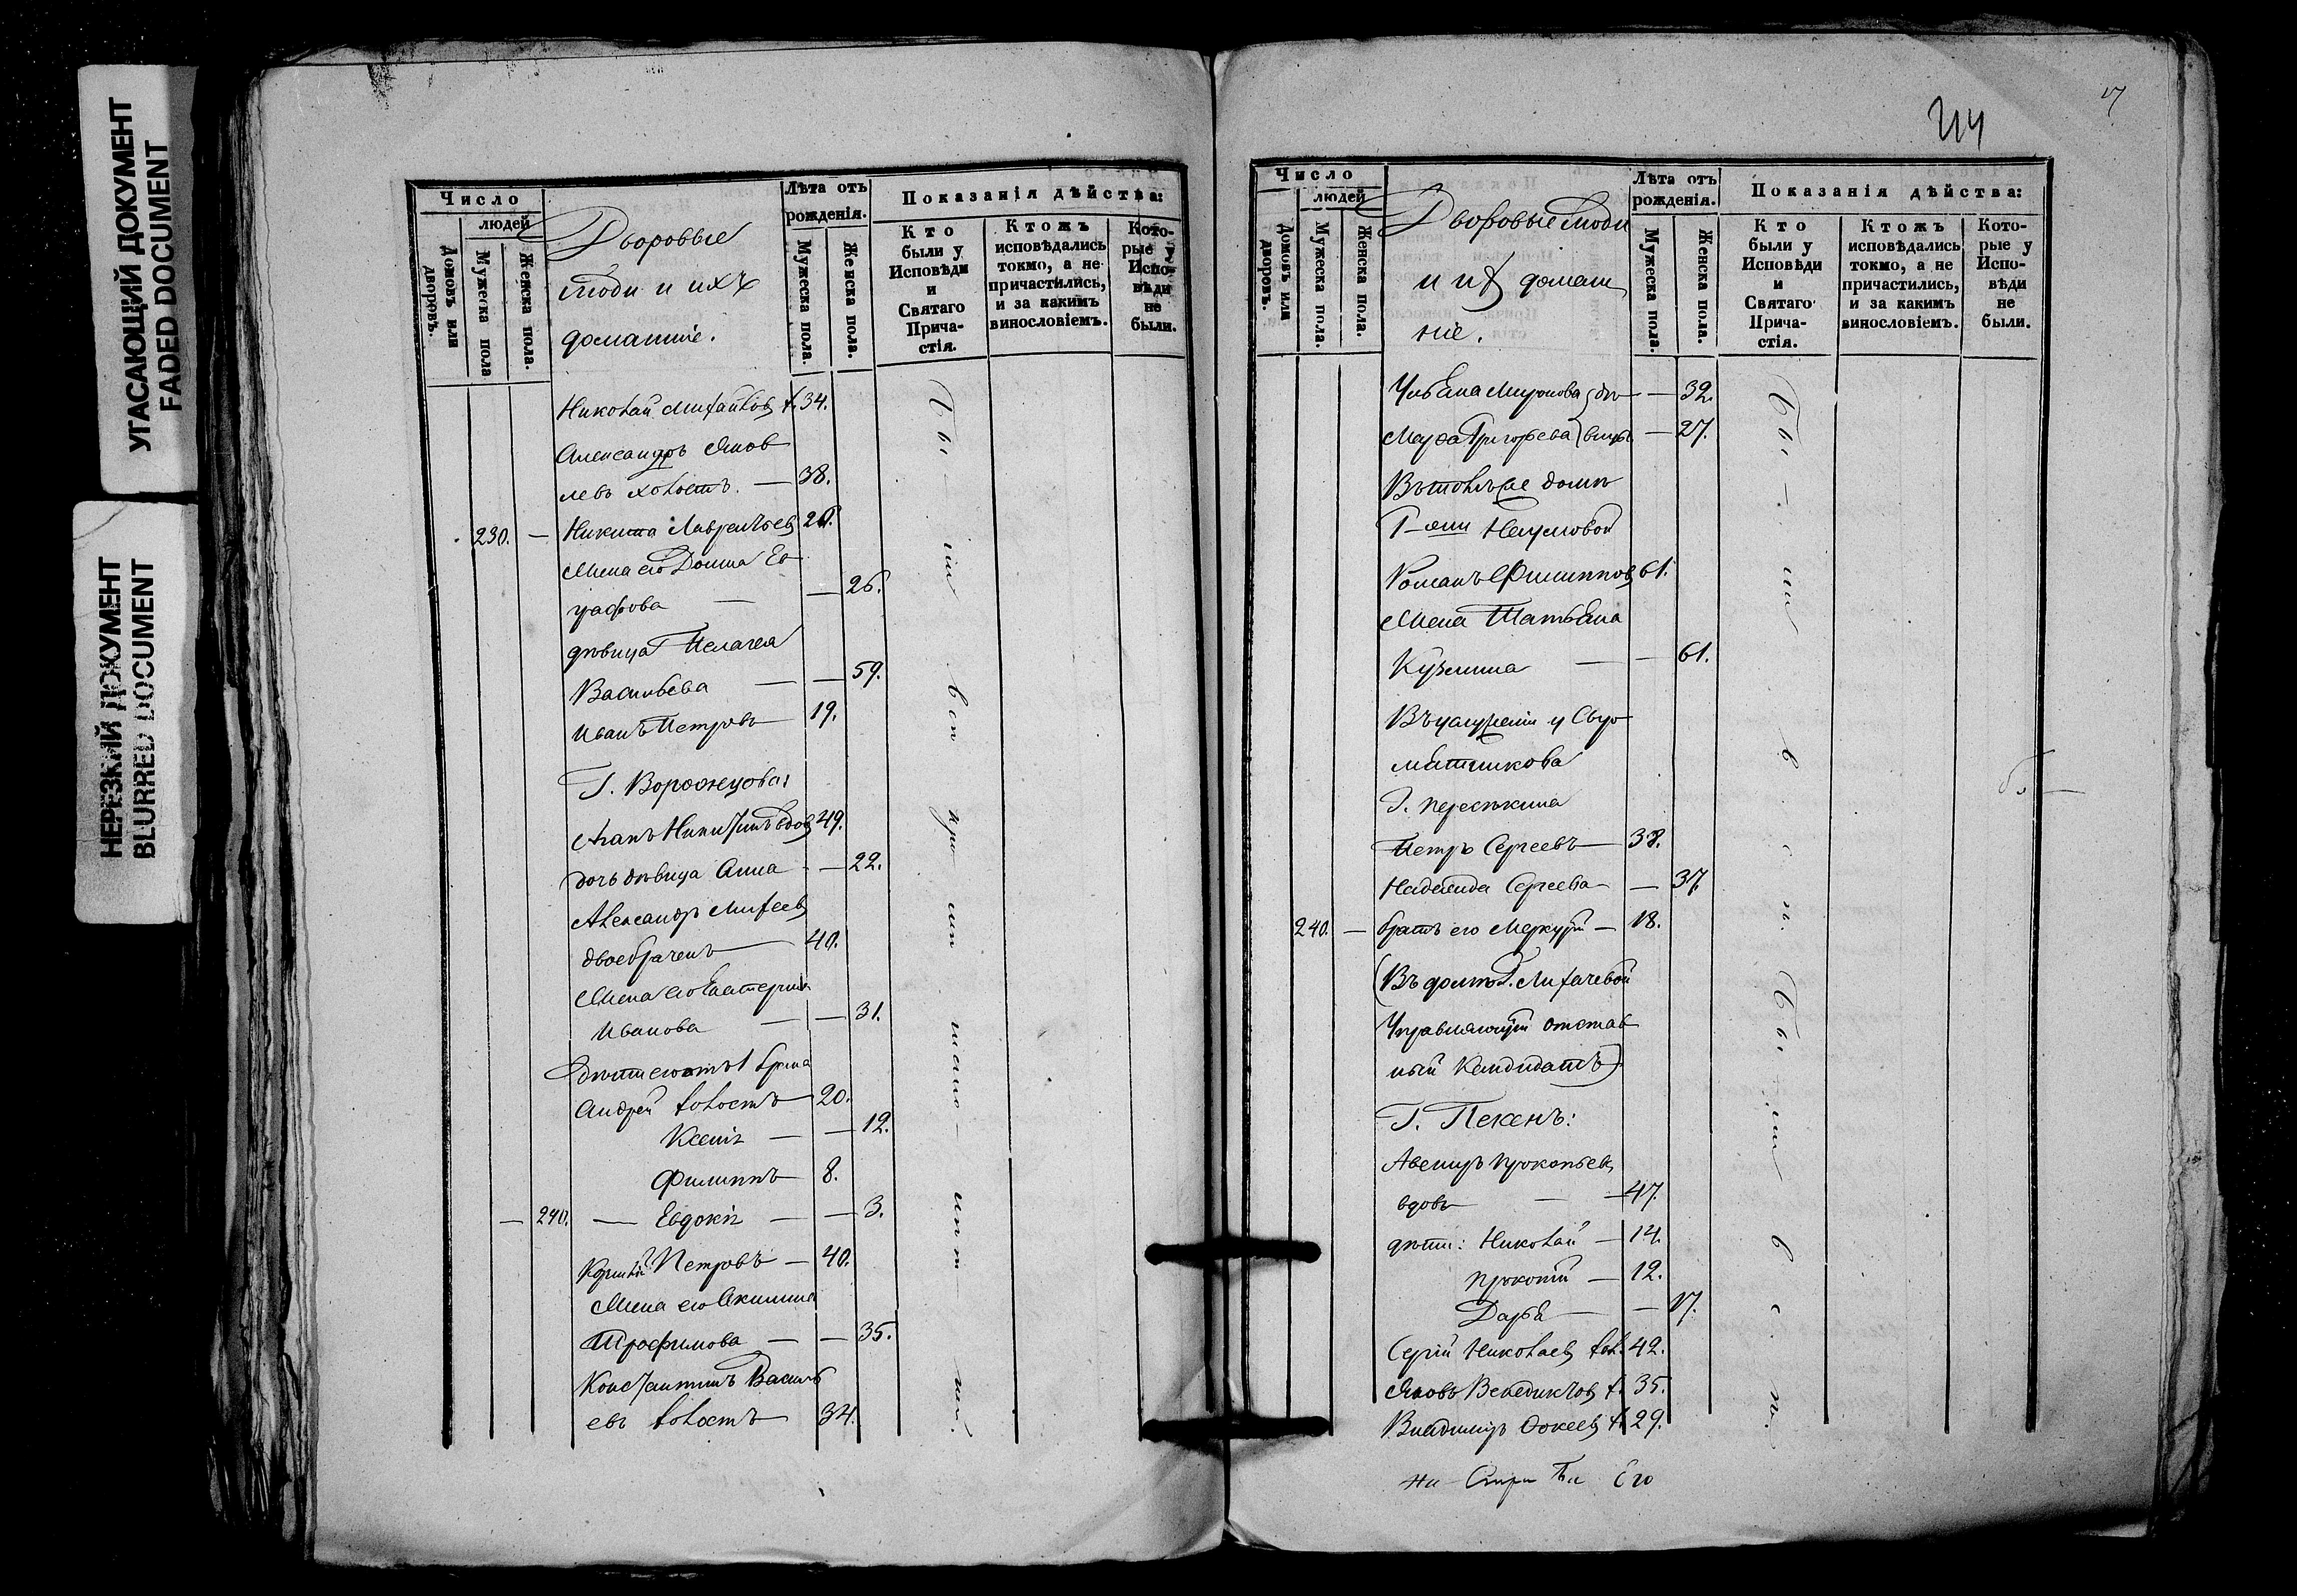 УГАСАЮЩИЙ ДОКУМЕНТ
FADED DOCUMENT
НЕРЕЗКИЙ ДОКУМЕНТ
BLURRED DOCUMENT
Число
людей
Домовъ или дворовъ.
Мужеска пола
Женска пола.
Дворовые
люди и ихъ
домашніе.
Лѣта отъ рожденія.
Мужеска пола.
Женска пола.
Показанія дѣйства:
Кто были у Исповѣди и Святаго Причастія.
Ктожъ исповѣдались токмо, а не причастились, и за какимъ винословіемъ.
Которые у Исповѣди не были.
Николай Михайловъ х. 34.
Александръ Яков
левъ холостъ. — 38.
230. — Никита Лаврентьевъ
Жена его Домна Ев
графова — — 26.
дѣвица Пелагея
Васильева — — 59.
Иванъ Петровъ 19.
Г. Воронцова:
Никитинъ вдов 49.
дочь дѣвица Анна — 22.
Александръ Михеевъ
двоебраченъ — 40.
Жена его Екатерина
Иванова — — 31.
дѣти его отъ 1 брака
Андрей холостъ 20.
Ксенія — — 12.
Филиппъ 8.
— 240. — Евдокія — — 3.
Петровъ — 40.
Жена его Акилина
Трофимова — — 35.
Константинъ Василь
евъ холостъ 34.
214
17
Число
людей
Домовъ или дворовъ.
Мужеска пола.
Женска пола.
Дворовые люди
и их домаш
ніе.
Лѣта отъ рожденія.
Мужеска пола.
Женска пола.
Показанія дѣйства:
Кто были у Исповѣди и Святаго Причастія.
Ктожъ исповѣдались токмо, а не причастились, и за какимъ винословіемъ.
Которые у Исповѣди не были.
Ульяна Миронова дѣ — 32.
Марфа Григорьева вицы — 27.
Въ томъ же домѣ
Г-жи Наумовой
Романъ Филипповъ 61.
Жена Татьяна
Кузмина — — 61.
Въ услуженіи у
Г.
Петръ Сергеевъ — 38.
Надежда Сергеева — 37.
240. — братъ его Меркурій — 18.
(Въ домѣ Г. Лихачевой
Управляющій отстав
ный Кандидатъ)
Г. Пекенъ:
Авениръ Прокопьевъ
вдовъ — 47.
дѣти: Николай — 14.
Прокопій — 12.
Дарья — — 17.
Сергій Николаевъ хол. 42.
Яковъ Венедиктовъ х. 35.
Владимиръ Фокеевъ х. 29.